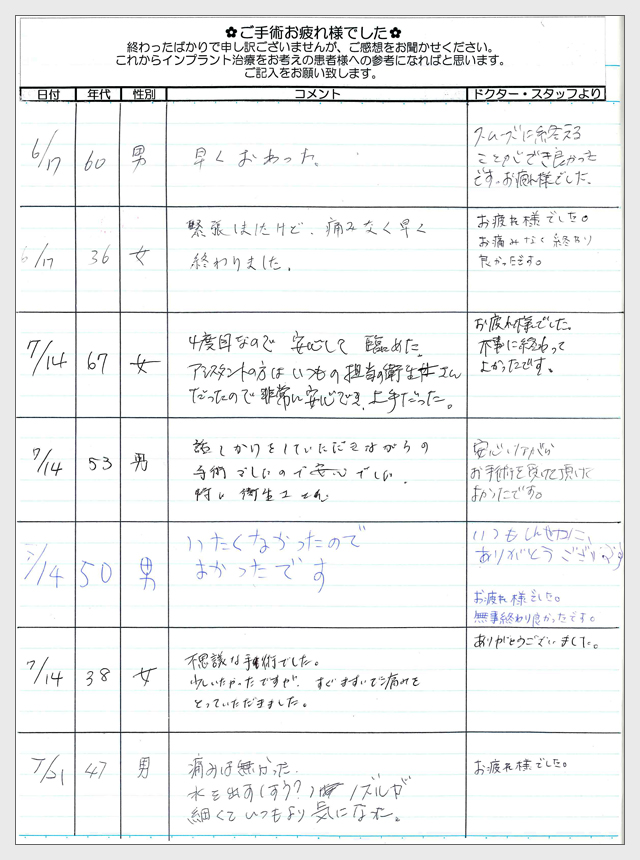 ✿ご手術お疲れ様でした✿
終わったばかりで申し訳ございませんが、ご感想をお聞かせください。
これからインプラント治療をお考えの患者様への参考になればと思います。
ご記入をお願い致します。
日付 年代 性別 コメント ドクター・スタッフより
6/17 60 男 早くおわった。
スムーズに終える
ことができ良かった
です。お疲れ様でした。
6/17 36 女
緊張しましたけど、痛みなく早く
終わりました。
お疲れ様でした。
お痛みなく終わり
良かったです。
7/14 67 女
4度目なので 安心して 臨めた。
アシスタントの方はいつもの担当の衛生士さん
だったので非常に安心でき、上手だった。
お疲れ様でした。
無事に終わって
よかったです。
7/14 53 男
話しかけをしていただきながらの
手術でしたので安心でした
特に衛生士さん
安心しながら
お手術を受けて頂けて
よかったです。
7/14 50 男
いたくなかったので
よかったです
いつも
ありがとうございます
お疲れ様でした。
無事終わり良かったです。
7/14 38 女
不思議な手術でした。
少しいたかったですが、すぐますいで痛みを
とっていただきました。
ありがとうございました。
7/21 47 男
痛みは無かった.
水を出す(すう?) ノズルが
細くていつもより気になった。
お疲れ様でした。